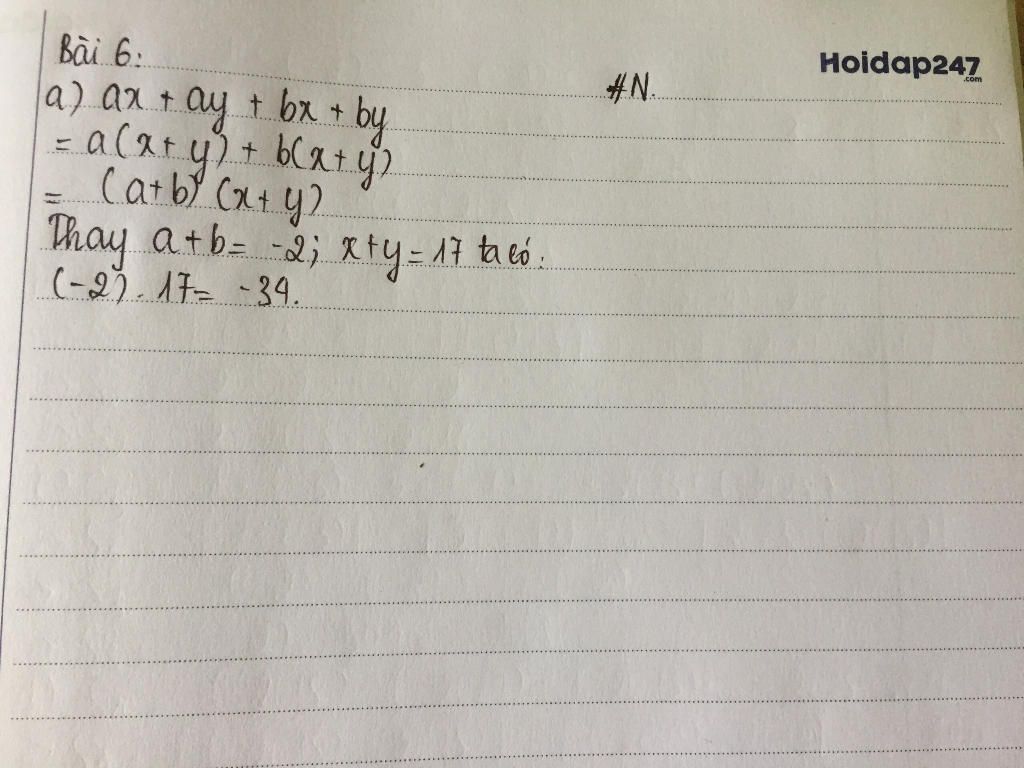 Bài 6:
Hoidap247
.com
#N.
a) ax + ay + bx + by
= a(x+y) + b(x+y)
= (a+b) (x+y)
Thay a+b= -2; x+y=17 ta có:
(-2). 17= -34.